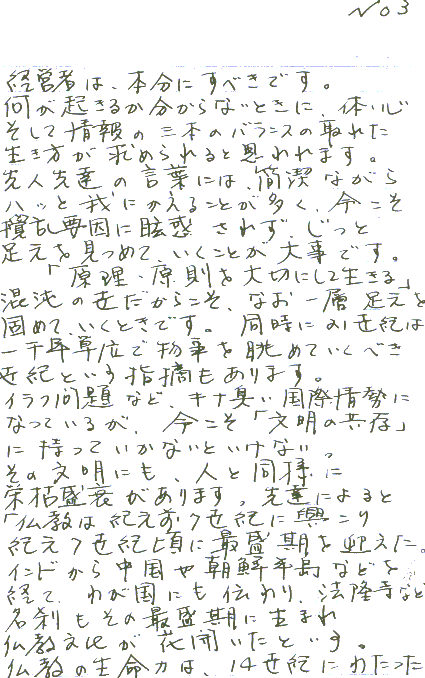 No 3
経営者は、本分にすべきです。
何が起きるか分からないときに、体、心
そして情報の三本のバランスの取れた
生き方が求められると思われます。
先人先達の言葉には、簡潔ながら
ハッと我にかえることが多く、今こそ
攪乱要因に眩惑されず、じっと
足元を見つめて、いくことが大事です。
「原理・原則を大切にして生きる」
混沌の世だからこそ、なお一層足元を
固めて、いくときです。同時に21世紀は
一千年単位で物事を眺めていくべき
世紀という指摘もあります。
イラク問題など、キナ臭い国際情勢に
なっているが、今こそ「文明の共存」
に持っていかないといけない。
その文明にも、人と同様に
栄枯盛衰があります。先達によると
「仏教は紀元前7世紀に興こり
紀元7世紀頃に最盛期を迎えた。
インドから中国や朝鮮半島などを
経て、わが国にも伝わり、法隆寺など
名刹もその最盛期に生まれ
仏教文化が花開いたという。
仏教の生命力は、14世紀にわたった